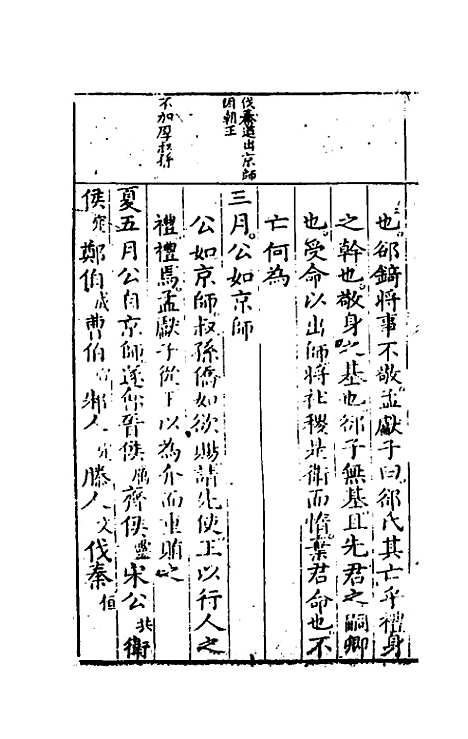 也郤錡將事不敬孟獻子曰郤氏其亡乎禮身
之幹也敬身之基也郤子無基且先君之嗣卿
也受命以出師將社稷是衛而惰棄君命也不
亡何為
三月公如京師
伐秦道出京師
因朝王
公如京師叔孫僑如欲賜請先使王以行人之
禮禮焉孟獻子從王以為介而重賄之
不加厚
夏五月公自京師遂伐晉侯厲齊侯靈宋公共衛
侯鄭伯成曹伯宣邾人定滕人文伐秦桓